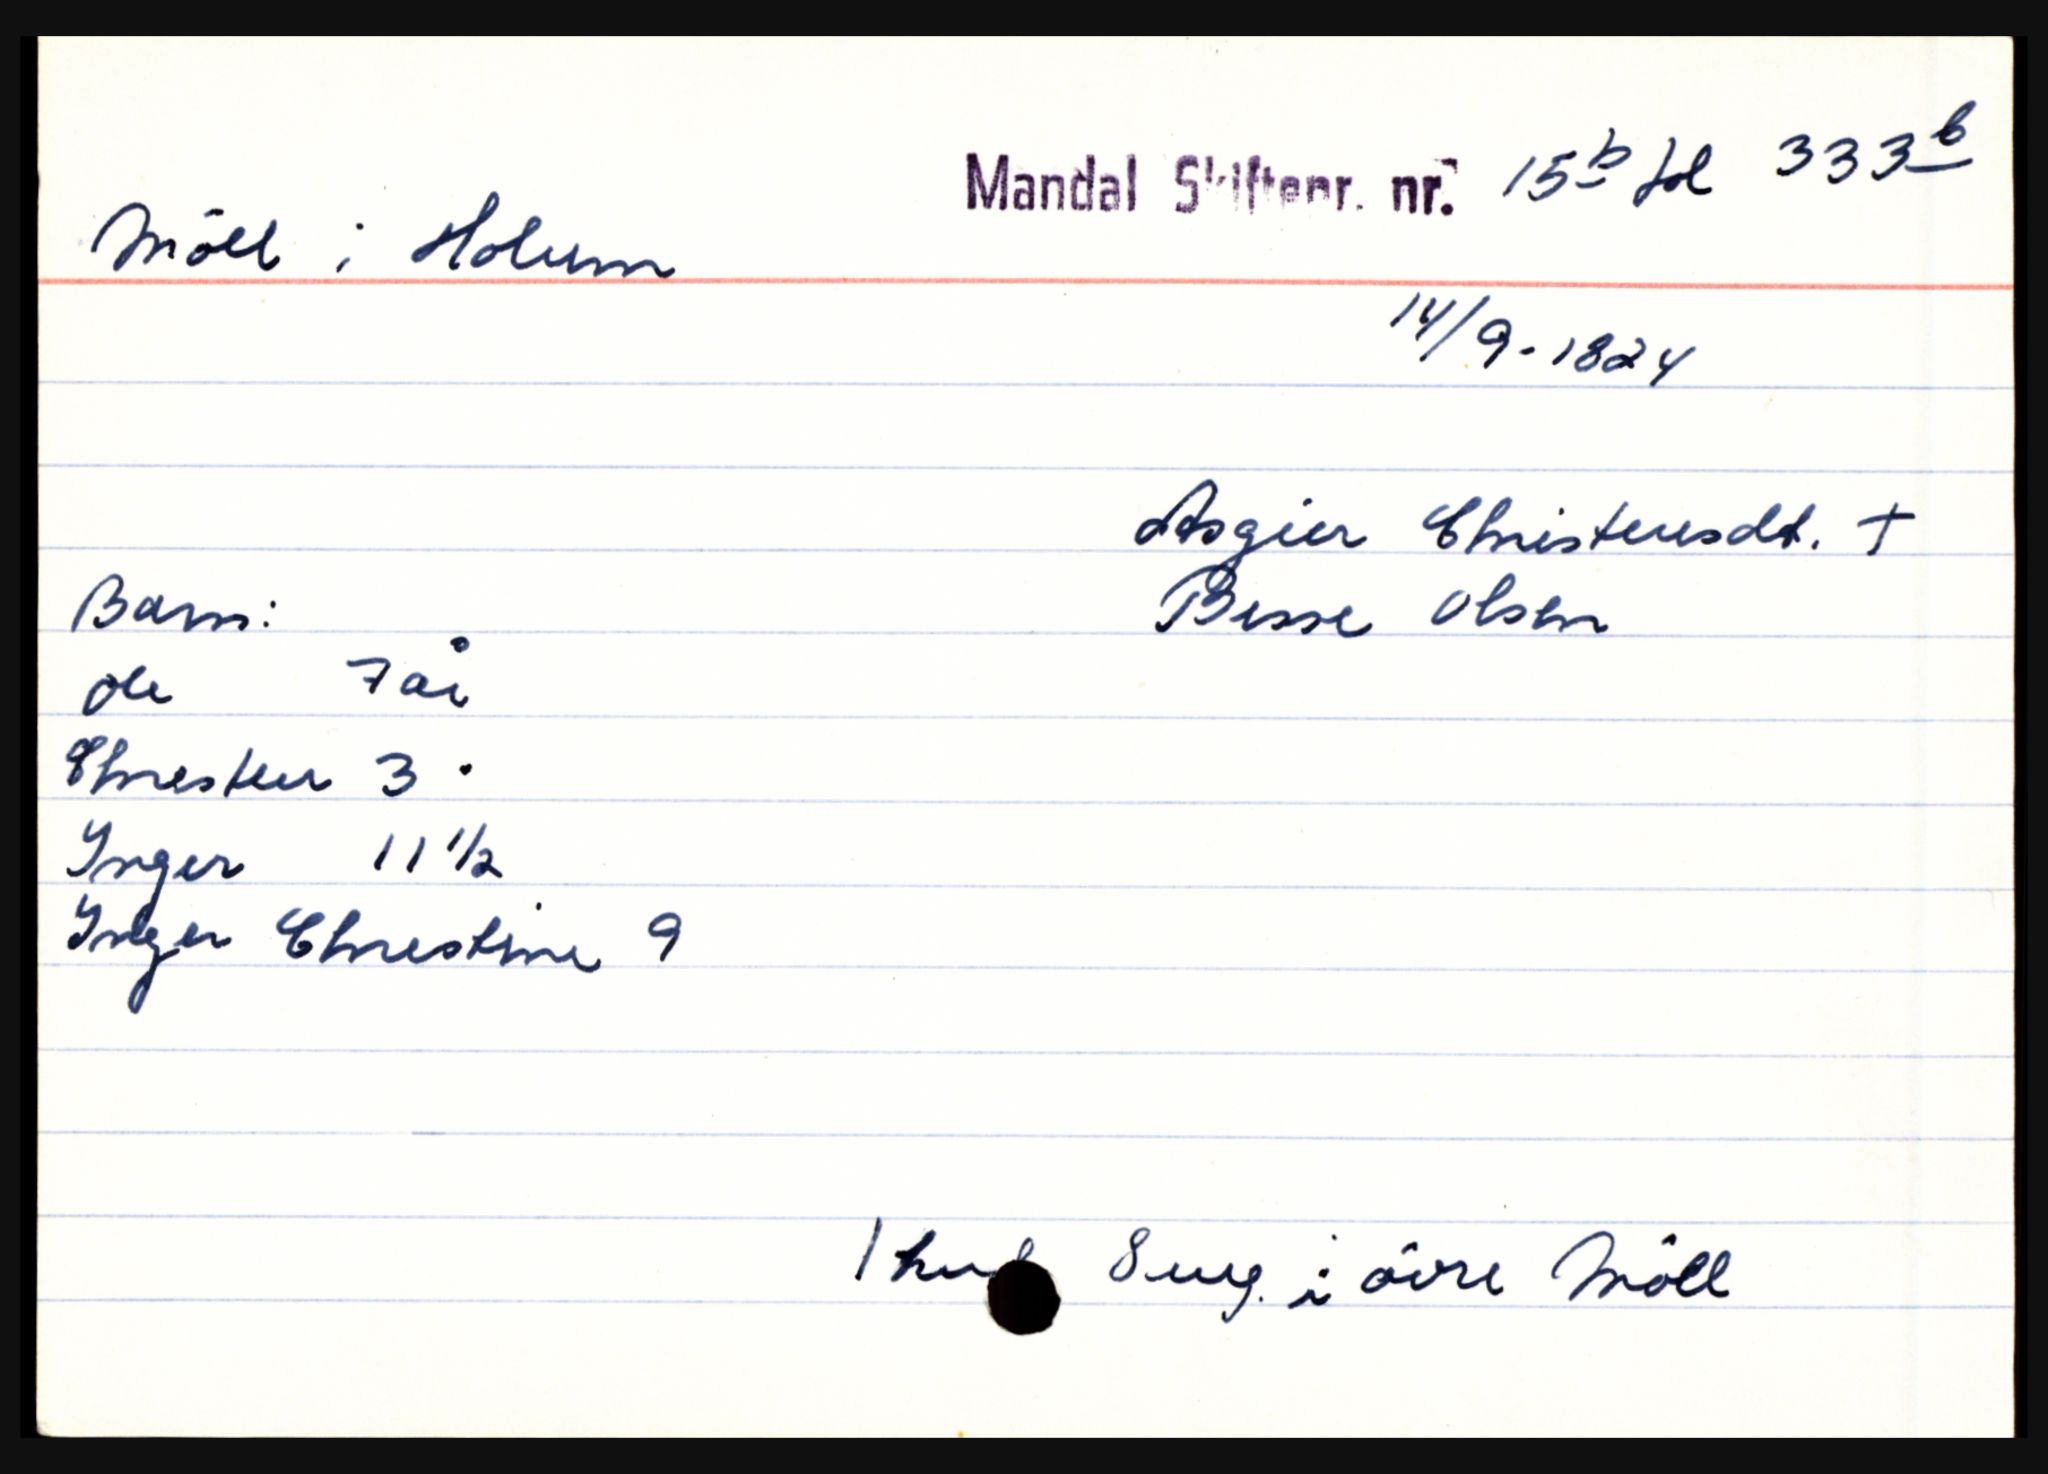 Mandal Skiftepr. nr. 15b fol 333b
Möll i Holum
14/9-1824
Asgier Christensdt. †
Barn:
Besse Olsen
Ole 7 år
Christen 3 "
Inger 11 1/2
Inger Christine 9
1 hud 8 eng. i övre Möll